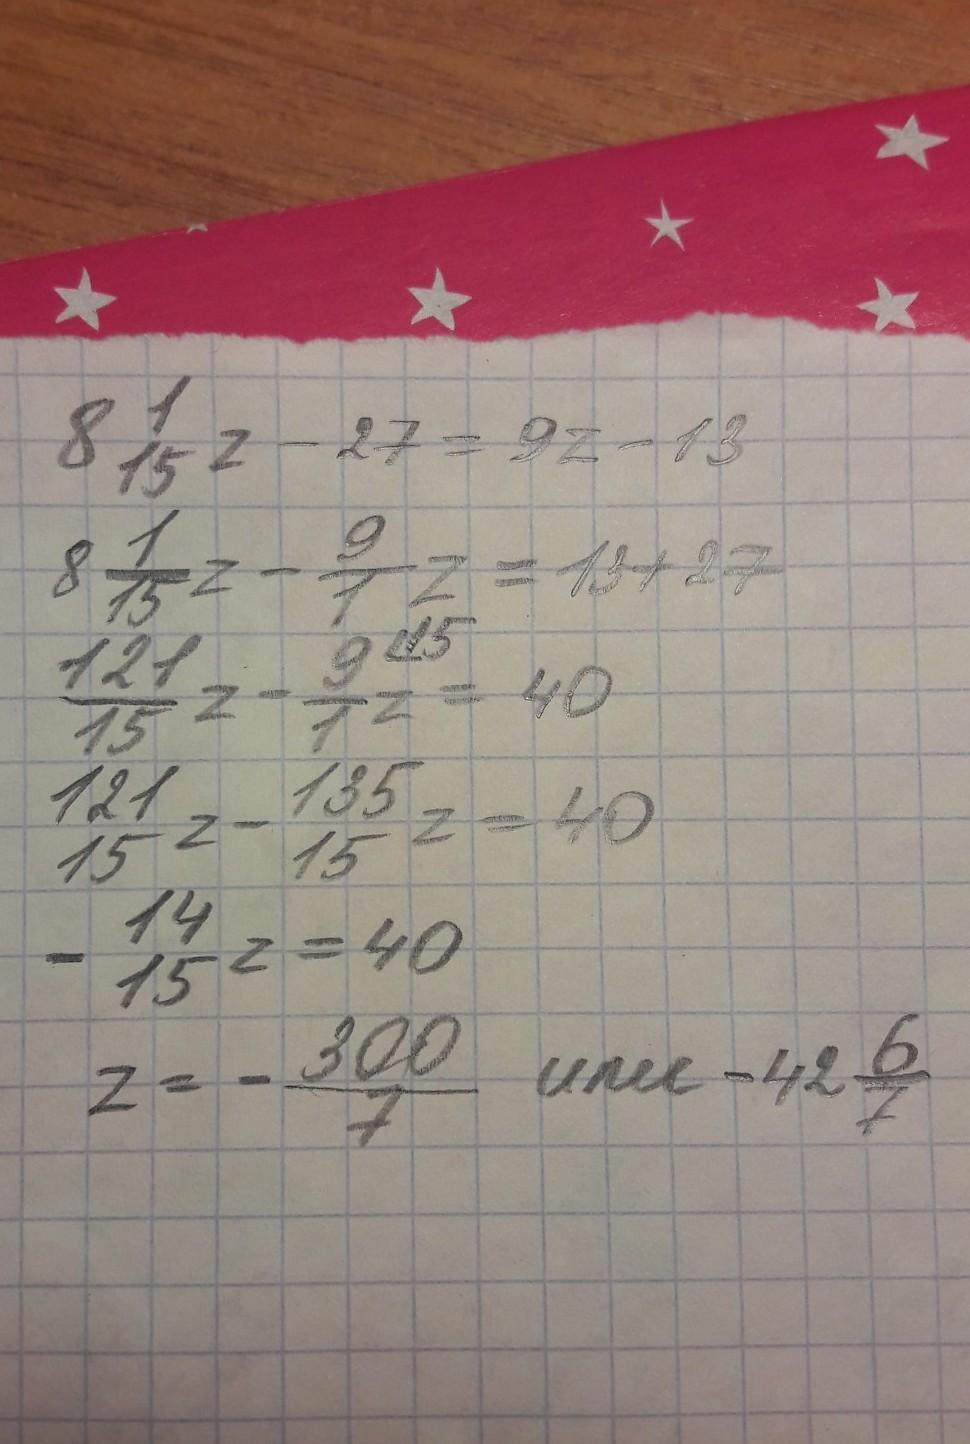 8 1/15 z - 27 = 9z - 13
8 1/15 z - 9/1 z = 13 + 27
121/15 z - 9/1 z = 40
121/15 z - 135/15 z = 40
- 14/15 z = 40
z = - 300/7 или - 42 6/7